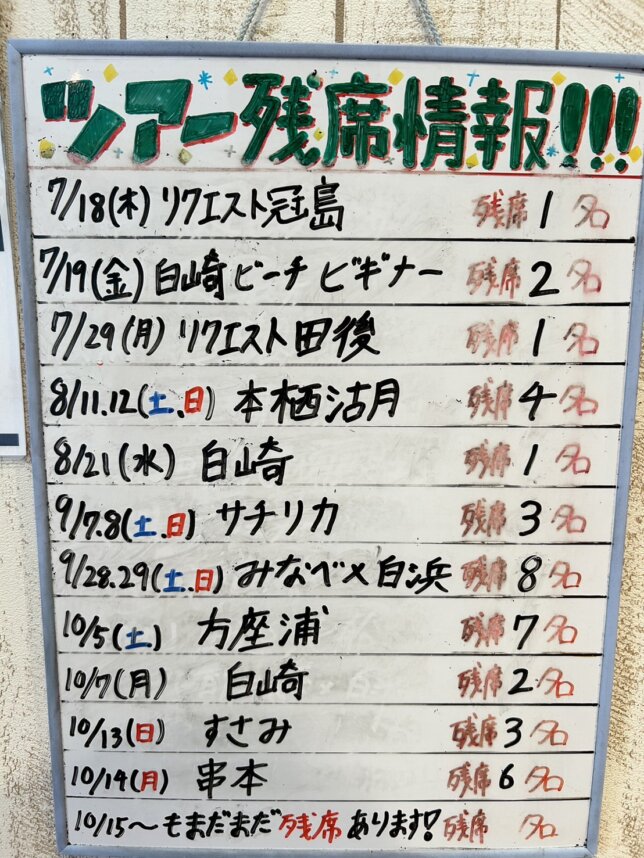 ツアー残席情報!!!
7/18(木) リクエスト冠島 残席 1 名
7/19(金) 白崎ビーチ ビギナー 残席 2 名
7/29(月) リクエスト田後 残席 1 名
8/11.12(土.日) 本栖沽月 残席 4 名
8/21(水) 白崎 残席 1 名
9/7.8(土.日) サチリカ 残席 3 名
9/28.29(土.日) みなべ×白浜 残席 8 名
10/5(土) 方座浦 残席 7 名
10/7(月) 白崎 残席 2 名
10/13(日) すさみ 残席 3 名
10/14(月) 串本 残席 6 名
10/15~もまだまだ残席あります! 残席 名